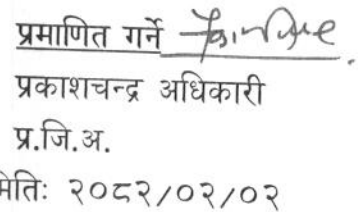 प्रमाणित गर्ने
प्रकाशचन्द्र अधिकारी
प्र.जि.अ.
मिति: २०८२/०२/०२